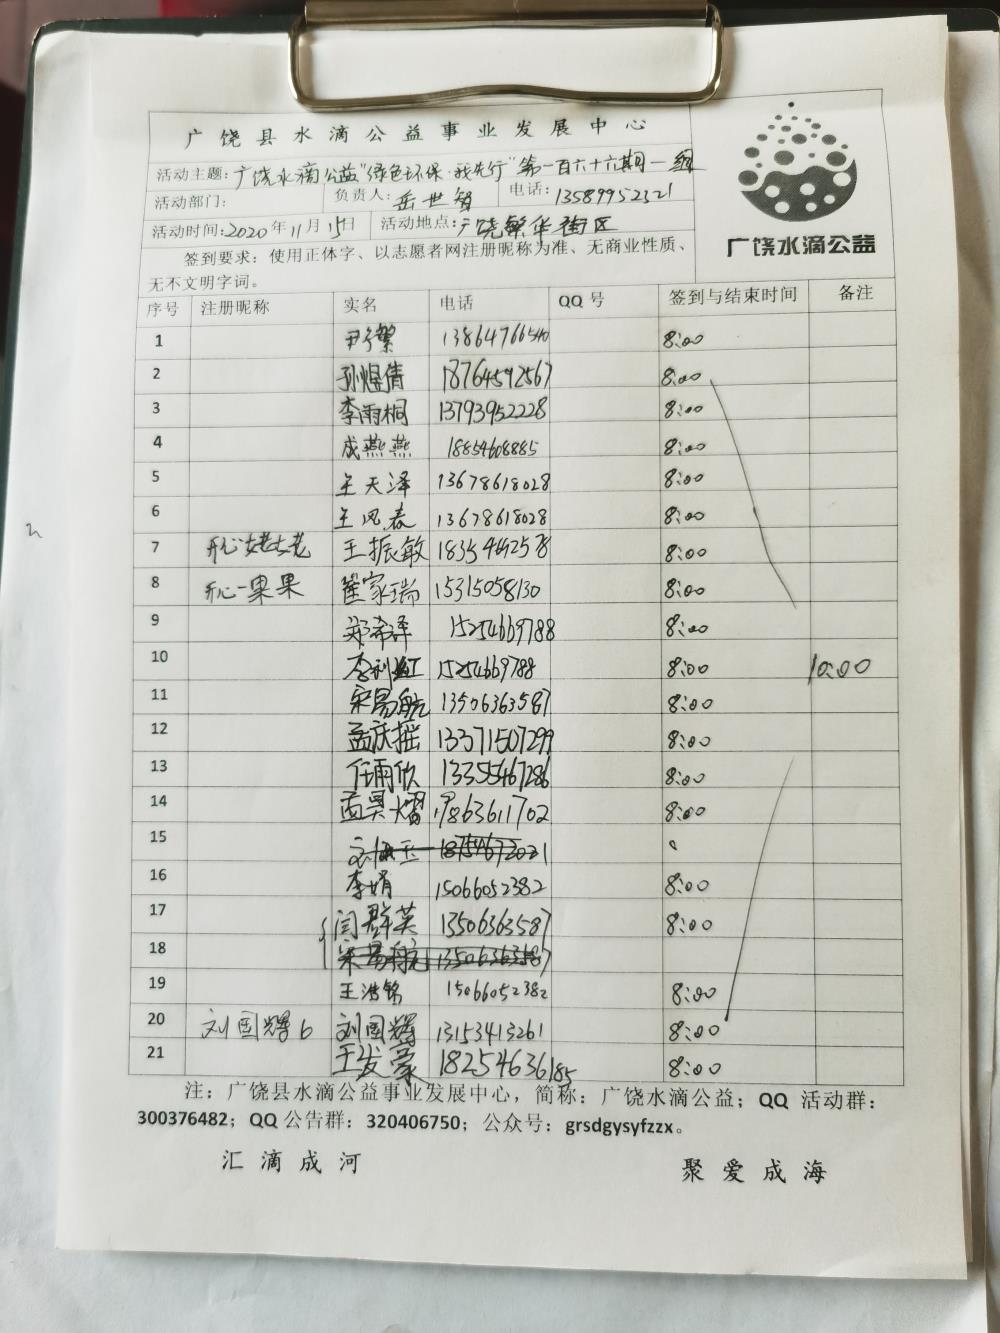 广饶县水滴公益事业发展中心
活动主题:广饶水滴公益“绿色环保·我先行”第一百六十六期一组
活动部门: 负责人:岳世智 电话:13589952521
活动时间:2020年11月15日 活动地点:广饶繁华街区
签到要求：使用正体字、以志愿者网注册昵称为准、无商业性质、
无不文明字词。
广饶水滴公益
序号 注册昵称 实名 电话 QQ号 签到与结束时间 备注
1 尹子繁 13864766540 8:00
2 孙煜倩 18764592567 8:00
3 李雨桐 13793952228 8:00
4 成燕燕 18854608885 8:00
5 王天泽 13678618028 8:00
6 王风春 13678618028 8:00
7 开心姥姥 王振敏 18354642578 8:00
8 开心一果果 翟家瑞 15315058130 8:00
9 郑希泽 15254669788 8:00
10 李利红 15254669788 8:00 10:00
11 宋易航 13506363587 8:00
12 孟庆摇 13371507299 8:00
13 任雨欣 13355467286 8:00
14 孟昊熠 17863611702 8:00
15 18754672021
16 李娟 15066052382 8:00
17 闫群英 13506363587 8:00
18 宋易航 13506363587
19 王浩铭 15066052382 8:00
20 刘国辉6 刘国辉 13153413261 8:00
21 王发豪 18254636185 8:00
注：广饶县水滴公益事业发展中心，简称：广饶水滴公益；QQ活动群：
300376482；QQ公告群：320406750；公众号：grsdgysyfzzx。
汇滴成河 聚爱成海